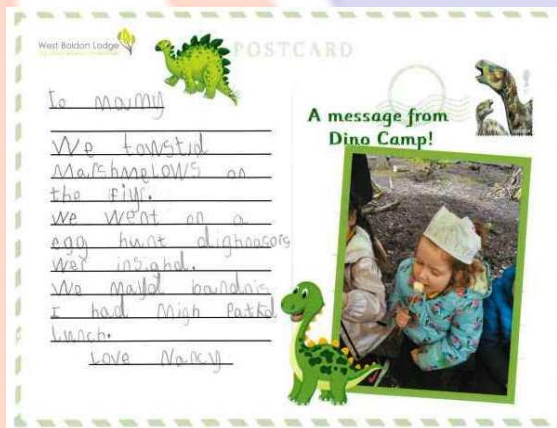 West Boldon Lodge
POSTCARD
To mamy
We towstid
Marshmelows on
the fiyr.
We went on a
egg hunt dighnasors
wer insighd.
We mayd bandnis
I had migh Patkd
Lunch.
Love Nancy
A message from
Dino Camp!